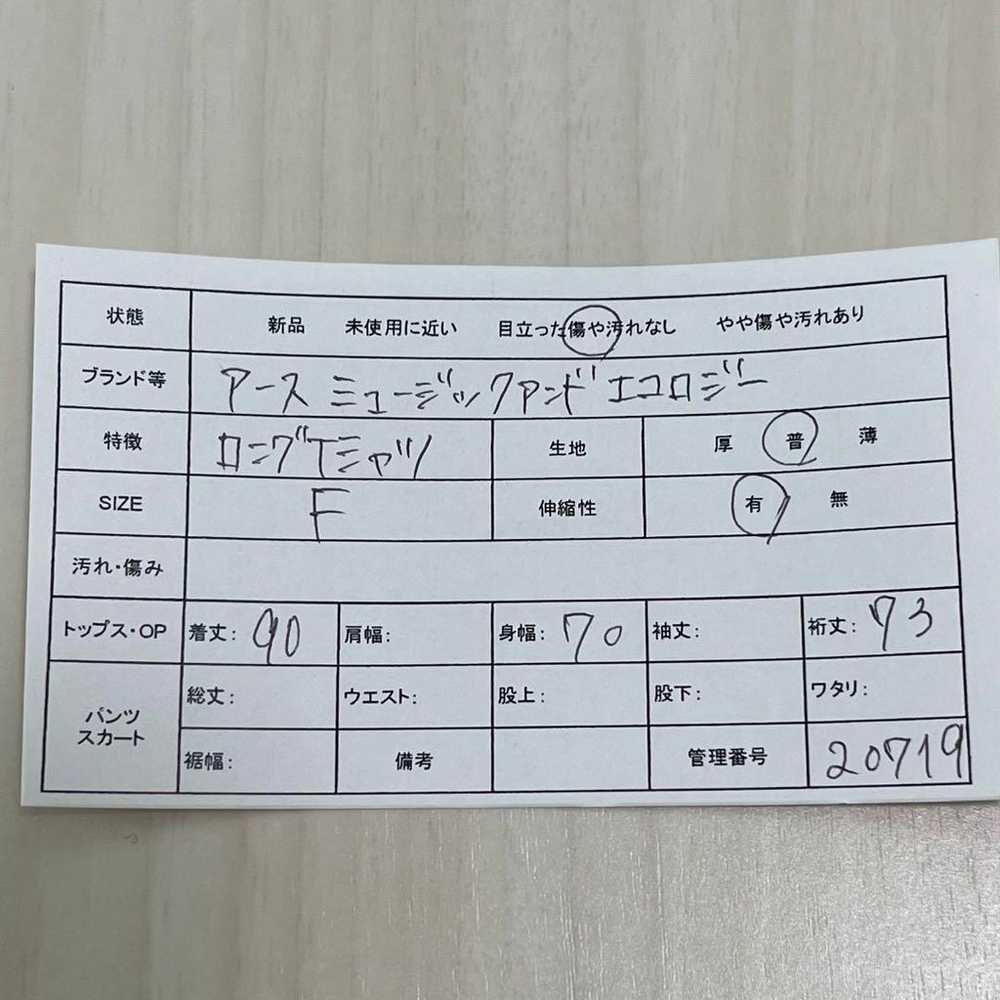 状態 新品 未使用に近い 目立った傷や汚れなし やや傷や汚れあり
ブランド等 アース ミュージックアンド エコロジー
特徴 ロングTシャツ 生地 厚 普 薄
SIZE F 伸縮性 有 無
汚れ・傷み
トップス・OP 着丈: 90 肩幅: 身幅: 70 袖丈: 裄丈: 73
パンツ
スカート
総丈: ウエスト: 股上: 股下: ワタリ:
裾幅: 備考 管理番号 20719